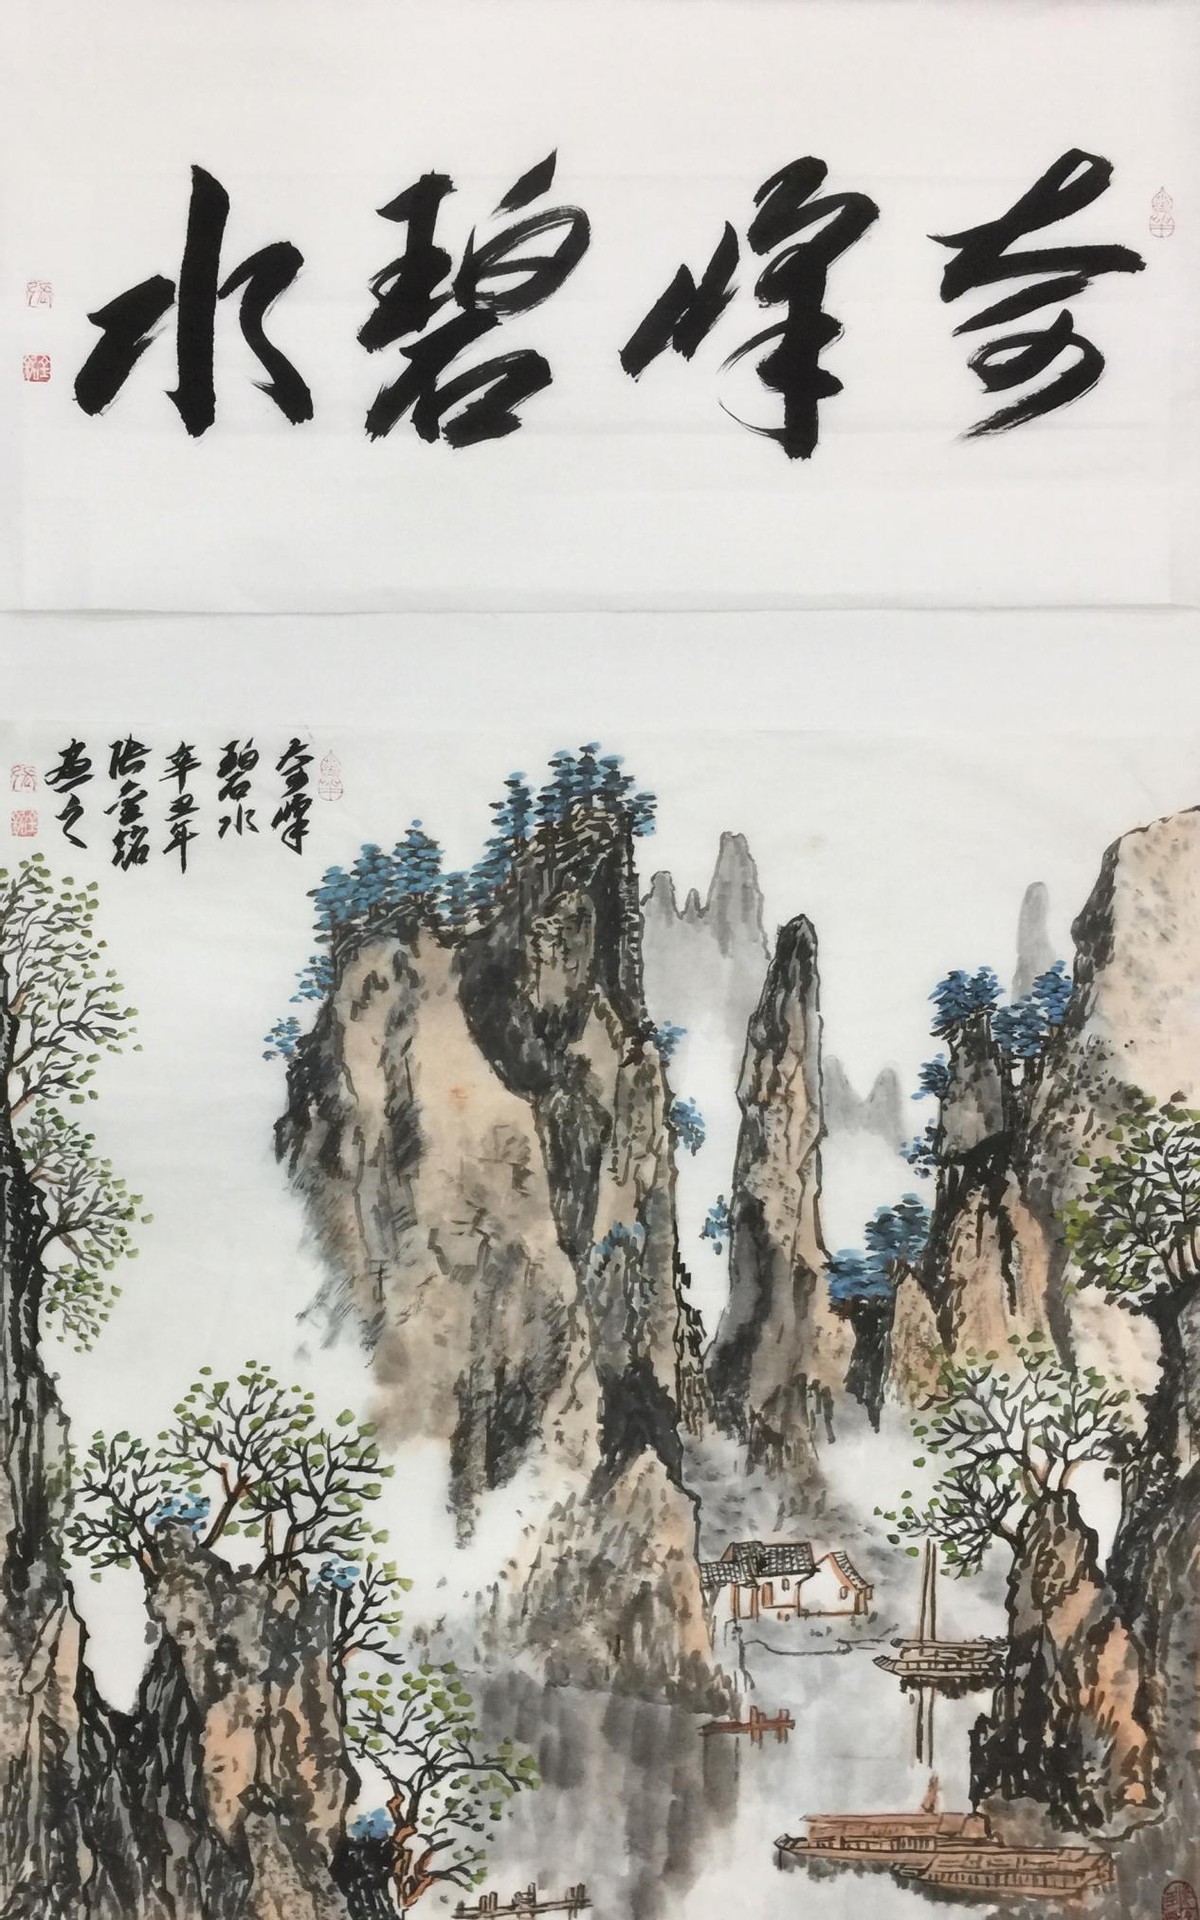 奇峰碧水
奇峰
碧水
辛丑年
张金铭
画之